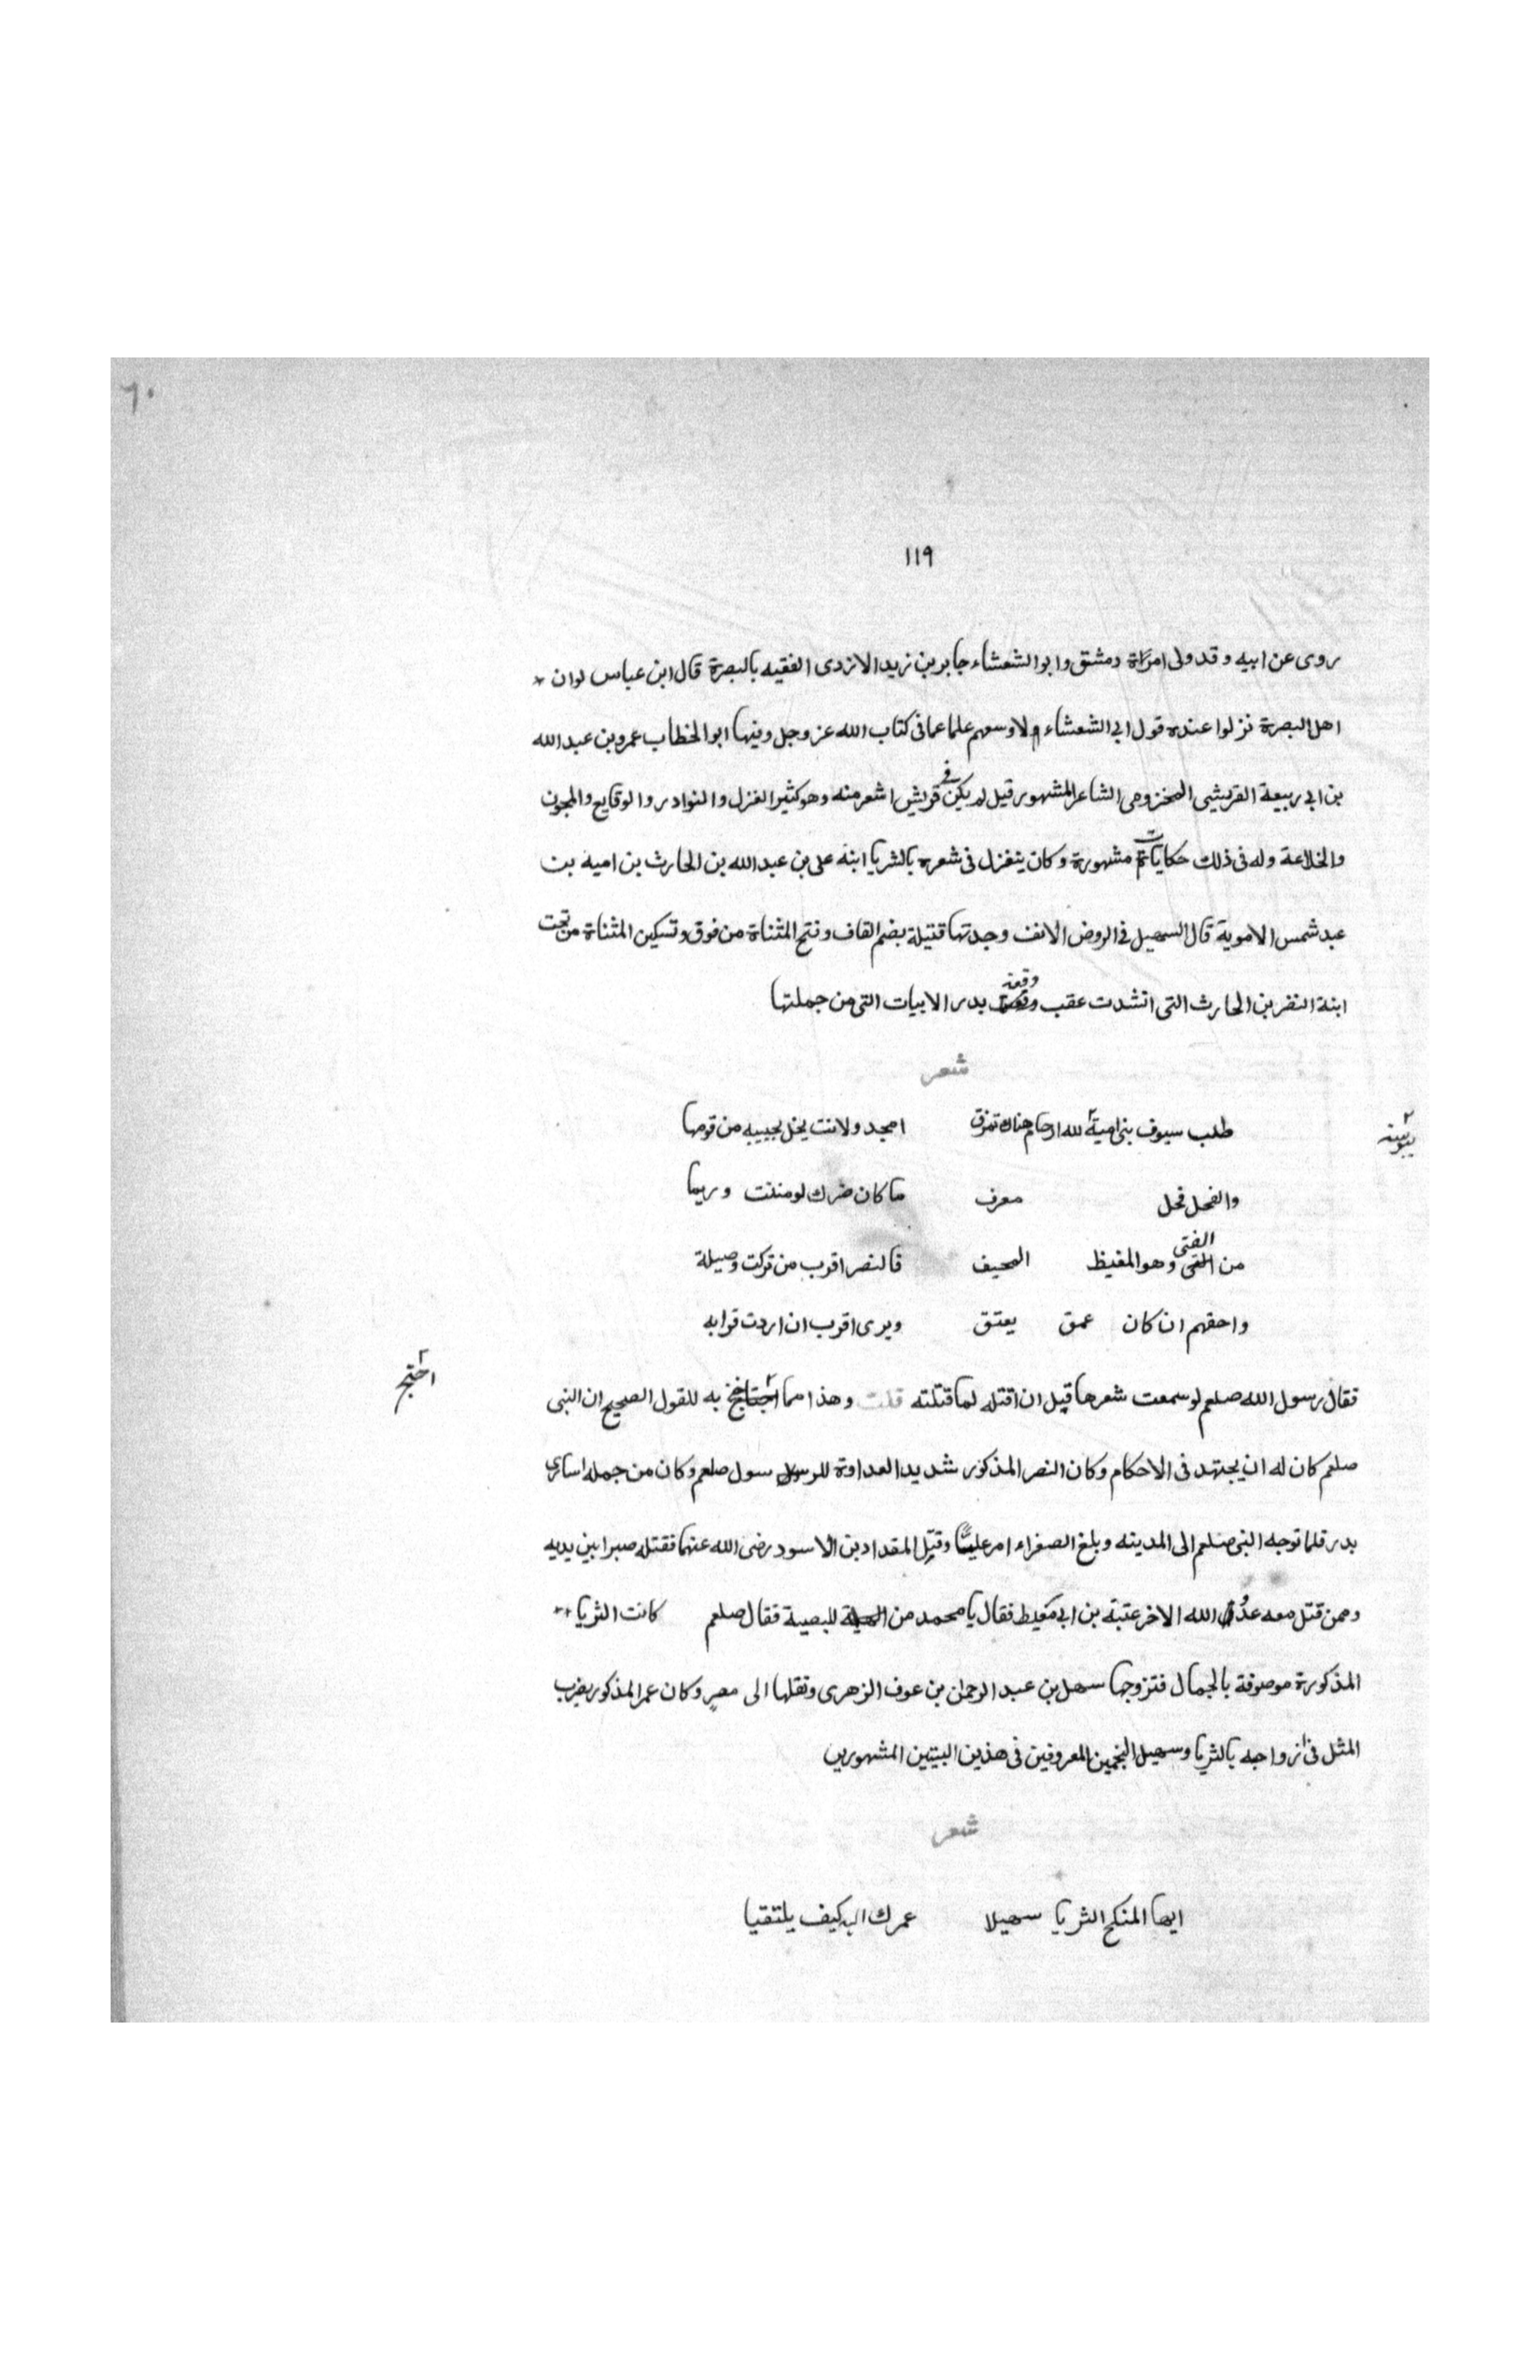 ٦٠
١١٩
روى عن ابيه وقد ولى امراة دمشق وابو الشعشاء جابر بن زيد الازدى الفقيه بالبصرة قال ابن عباس لو ان
اهل البصرة نزلوا عنده قول ابى الشعشاء لاوسعهم علما عما فى كتاب الله عز وجل وفيها ابو الخطاب عمرو بن عبد الله
بن ابى ربيعة القريشى المخزومى الشاعر المشهور قيل لم يكن فى قريش اشعر منه وهو كثير الغزل والنوادر والوقايع والمجون
والخلاعة وله فى ذلك حكايات مشهورة وكان يتغزل فى شعره بالثريا ابنة على بن عبد الله بن الحارث بن اميه بن
عبد شمس الاموية قال السهيل فى الروض الانف وجدتها قتيلة بضم القاف وفتح المثناة من فوق وتسكين المثناة من تحت
ابنة النضر بن الحارث التى انشدت عقب وقعة بدر الابيات التى من جملتها
شعر
طلب سيوف بنى امية لله ارحام هناك تمزق امجد ولانت يخل بجيبه من قومها
والفحل فحل معرف ما كان ضرك لو مننت وربما
من الفتى وهو المغيظ المحيف فالنضر اقرب من تركت وصيلة
واحقهم ان كان عمق يعتق ويرى اقرب ان اردت قرابه
احتج
فقال رسول الله صلعم لو سمعت شعرها قبل ان اقتله لما قتلته قلت وهذا مما به للقول الصحيح ان النبى
صلعم كان له ان يجتهد فى الاحكام وكان النضر المذكور شديد العداوة للرسول سول صلعم وكان من جمله اسارى
بدر فلما توجه النبى صلعم الى المدينه وبلغ الصفراء امر عليا وقيل المقداد بن الاسود رضى الله عنهما فقتله صبرا بين يديه
وممن قتل معه عدو الله الاخر عتبة بن ابى معيط فقال يا محمد من للبصية فقال صلعم كانت الثريا
المذكورة موصوفة بالجمال فتزوجها سهل بن عبد الرحمان بن عوف الزهرى ونقلها الى مصر وكان عمر المذكور يضرب
المثل فى ازواجه بالثريا وسهيل النجمين المعروفين فى هذين البيتين المشهورين
شعر
ايها المنكح الثريا سهيلا عمرك الله كيف يلتقيا